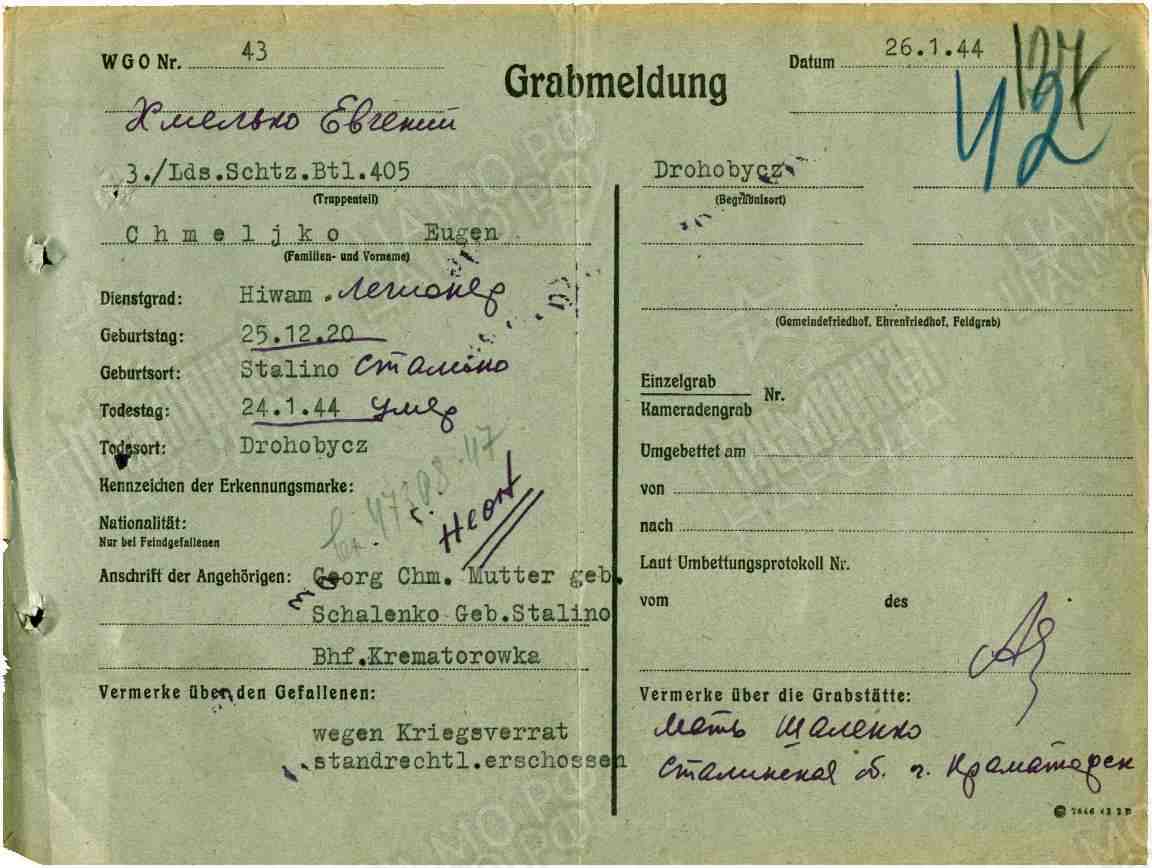 WGO Nr. 43
Grabmeldung
Datum 26.1.44
127
42
Хмелько Евгений
3./Lds.Schtz.Btl.405
(Truppenteil)
Chmeljko Eugen
(Familien- und Vorname)
Dienstgrad: Hiwam. Легионер
Geburtstag: 25.12.20
Geburtsort: Stalino Сталино
Todestag: 24.1.44 умер
Todesort: Drohobycz
Kennzeichen der Erkennungsmarke:
Nationalität:
Nur bei Feindgefallenen
Anschrift der Angehörigen: Georg Chm. Mutter geb.
Schalenko Geb.Stalino
Bhf.Krematorowka
Vermerke über den Gefallenen:
wegen Kriegsverrat
standrechtl.erschossen
Drohobycz
(Begräbnisort)
(Gemeindefriedhof, Ehrenfriedhof, Feldgrab)
Einzelgrab
Kameradengrab
Nr.
Umgebettet am
von
nach
Laut Umbettungsprotokoll Nr.
vom des
Vermerke über die Grabstätte:
Мать Шаленко
Сталинская о. г. Краматорск
ЦАМО РФ